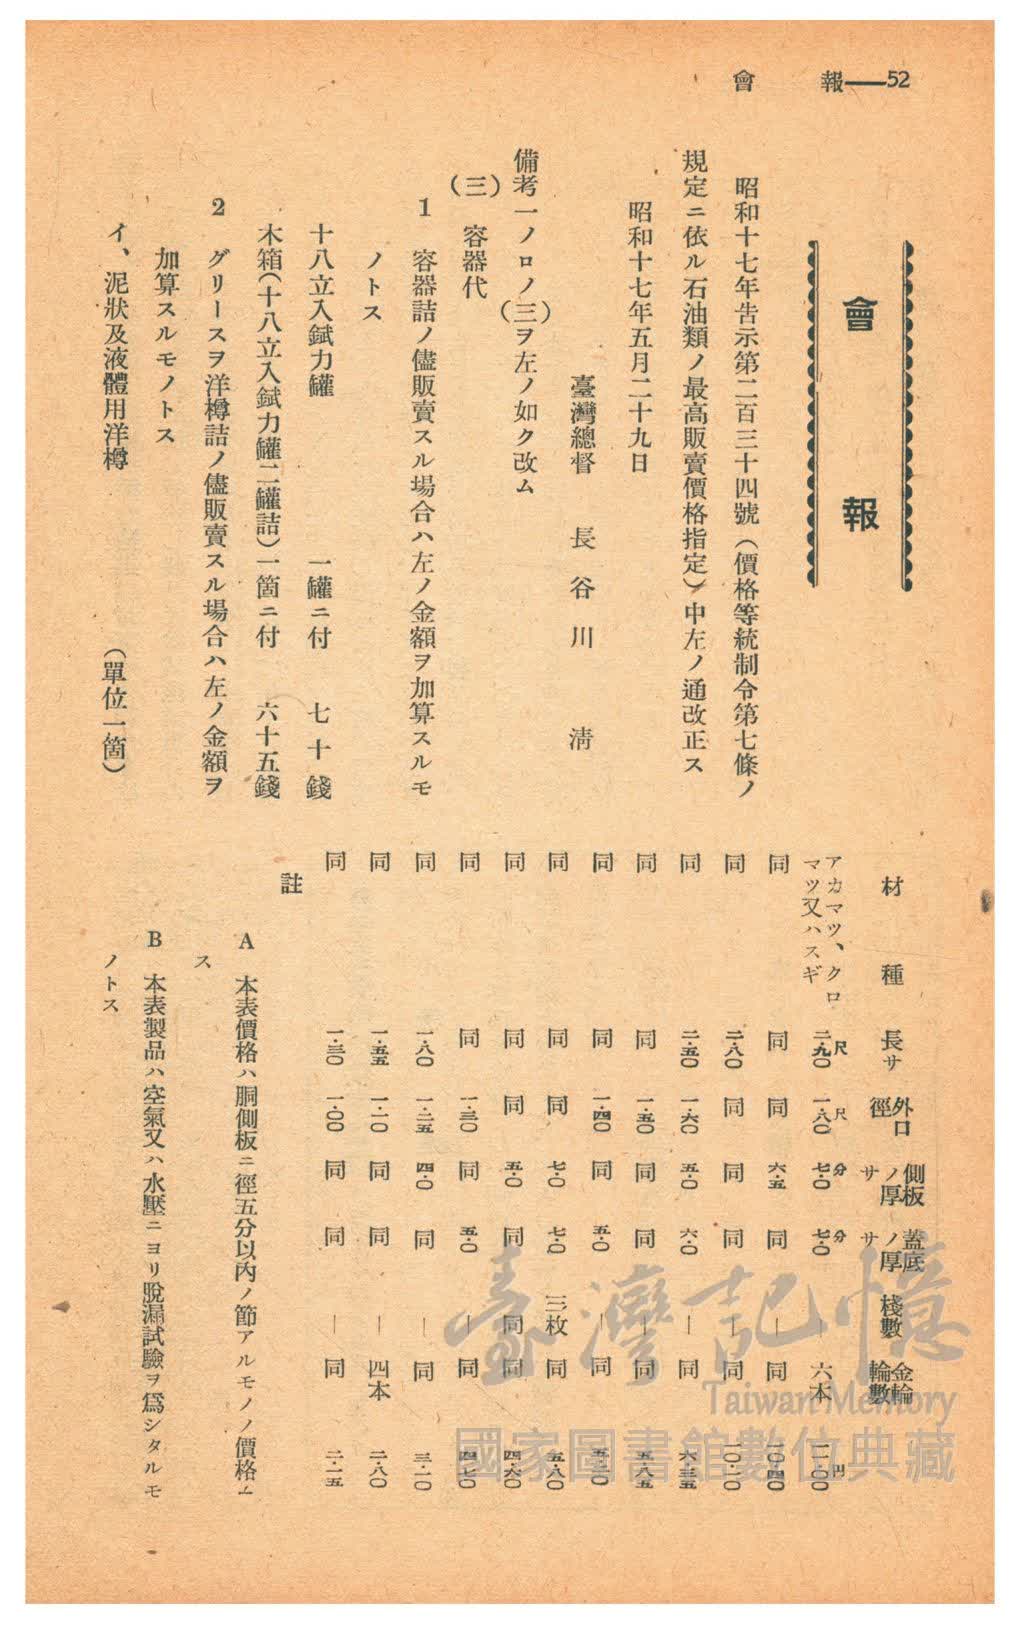 會 報——52
會 報
昭和十七年告示第二百三十四號（價格等統制令第七條ノ
規定ニ依ル石油類ノ最高販賣價格指定）中左ノ通改正ス
昭和十七年五月二十九日
臺灣總督 長谷川 淸
備考一ノロノ（三）ヲ左ノ如ク改ム
（三） 容器代
1 容器詰ノ儘販賣スル場合ハ左ノ金額ヲ加算スルモ
ノトス
十八立入鉽力罐 一罐ニ付 七十錢
木箱（十八立入鉽力罐二罐詰）一箇ニ付 六十五錢
2 グリースヲ洋樽詰ノ儘販賣スル場合ハ左ノ金額ヲ
加算スルモノトス
イ、泥狀及液體用洋樽 （單位一箇）
材種 長サ 外口徑 側板ノ厚サ 蓋底ノ厚サ 棧數 金輪輪數
アカマツ、クロマツ又ハスギ 二・九〇尺 一・八〇尺 七・〇分 七・〇分 — 六本 一一・〇〇円
同 同 同 六・五 同 — 同 一〇・四〇
同 二・八〇 同 同 同 — 同 一〇・二〇
同 二・五〇 一・六〇 五・〇 六・〇 — 同 六・三五
同 同 一・五〇 同 同 — 同 五・八五
同 同 一・四〇 同 五・〇 — 同
同 同 同 七・〇 七・〇 三枚 同 五・八〇
同 同 同 五・〇 同 同 同 四・六〇
同 同 一・三〇 同 五・〇 — 同 四・七〇
同 一・八〇 一・二五 四・〇 同 — 同 三・二〇
同 一・五五 一・二〇 同 同 — 四本 二・八〇
同 一・三〇 一・〇〇 同 同 — 同 二・一五
註
A 本表價格ハ胴側板ニ徑五分以內ノ節アルモノノ價格ム
ス
B 本表製品ハ空氣又ハ水壓ニヨリ脫漏試驗ヲ爲シタルモ
ノトス
臺灣記憶
Taiwan Memory
國家圖書館數位典藏